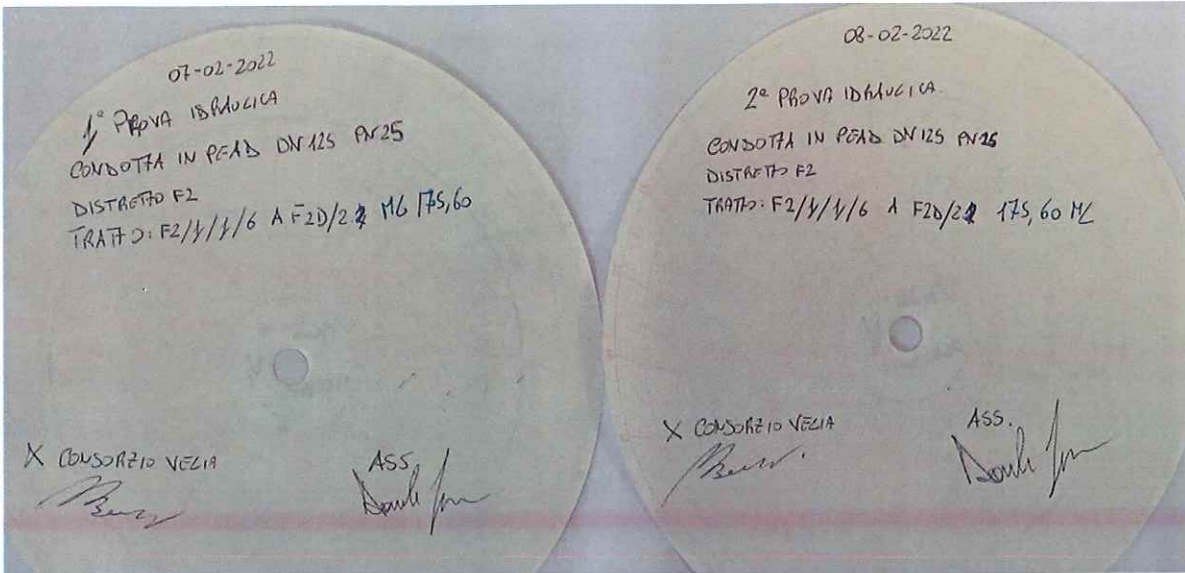 07-02-2022
1ª PROVA IDRAULICA
CONDOTTA IN PEAD DN 125 PN 25
DISTRETTO F2
TRATTO: F2/1/1/6 A F2D/2.2 ML 175,60
X CONSORZIO VELIA
ASS.
08-02-2022
2ª PROVA IDRAULICA.
CONDOTTA IN PEAD DN 125 PN25
DISTRETTO F2
TRATTO: F2/1/1/6 A F2D/22 175,60 ML
X CONSORZIO VELIA
ASS.